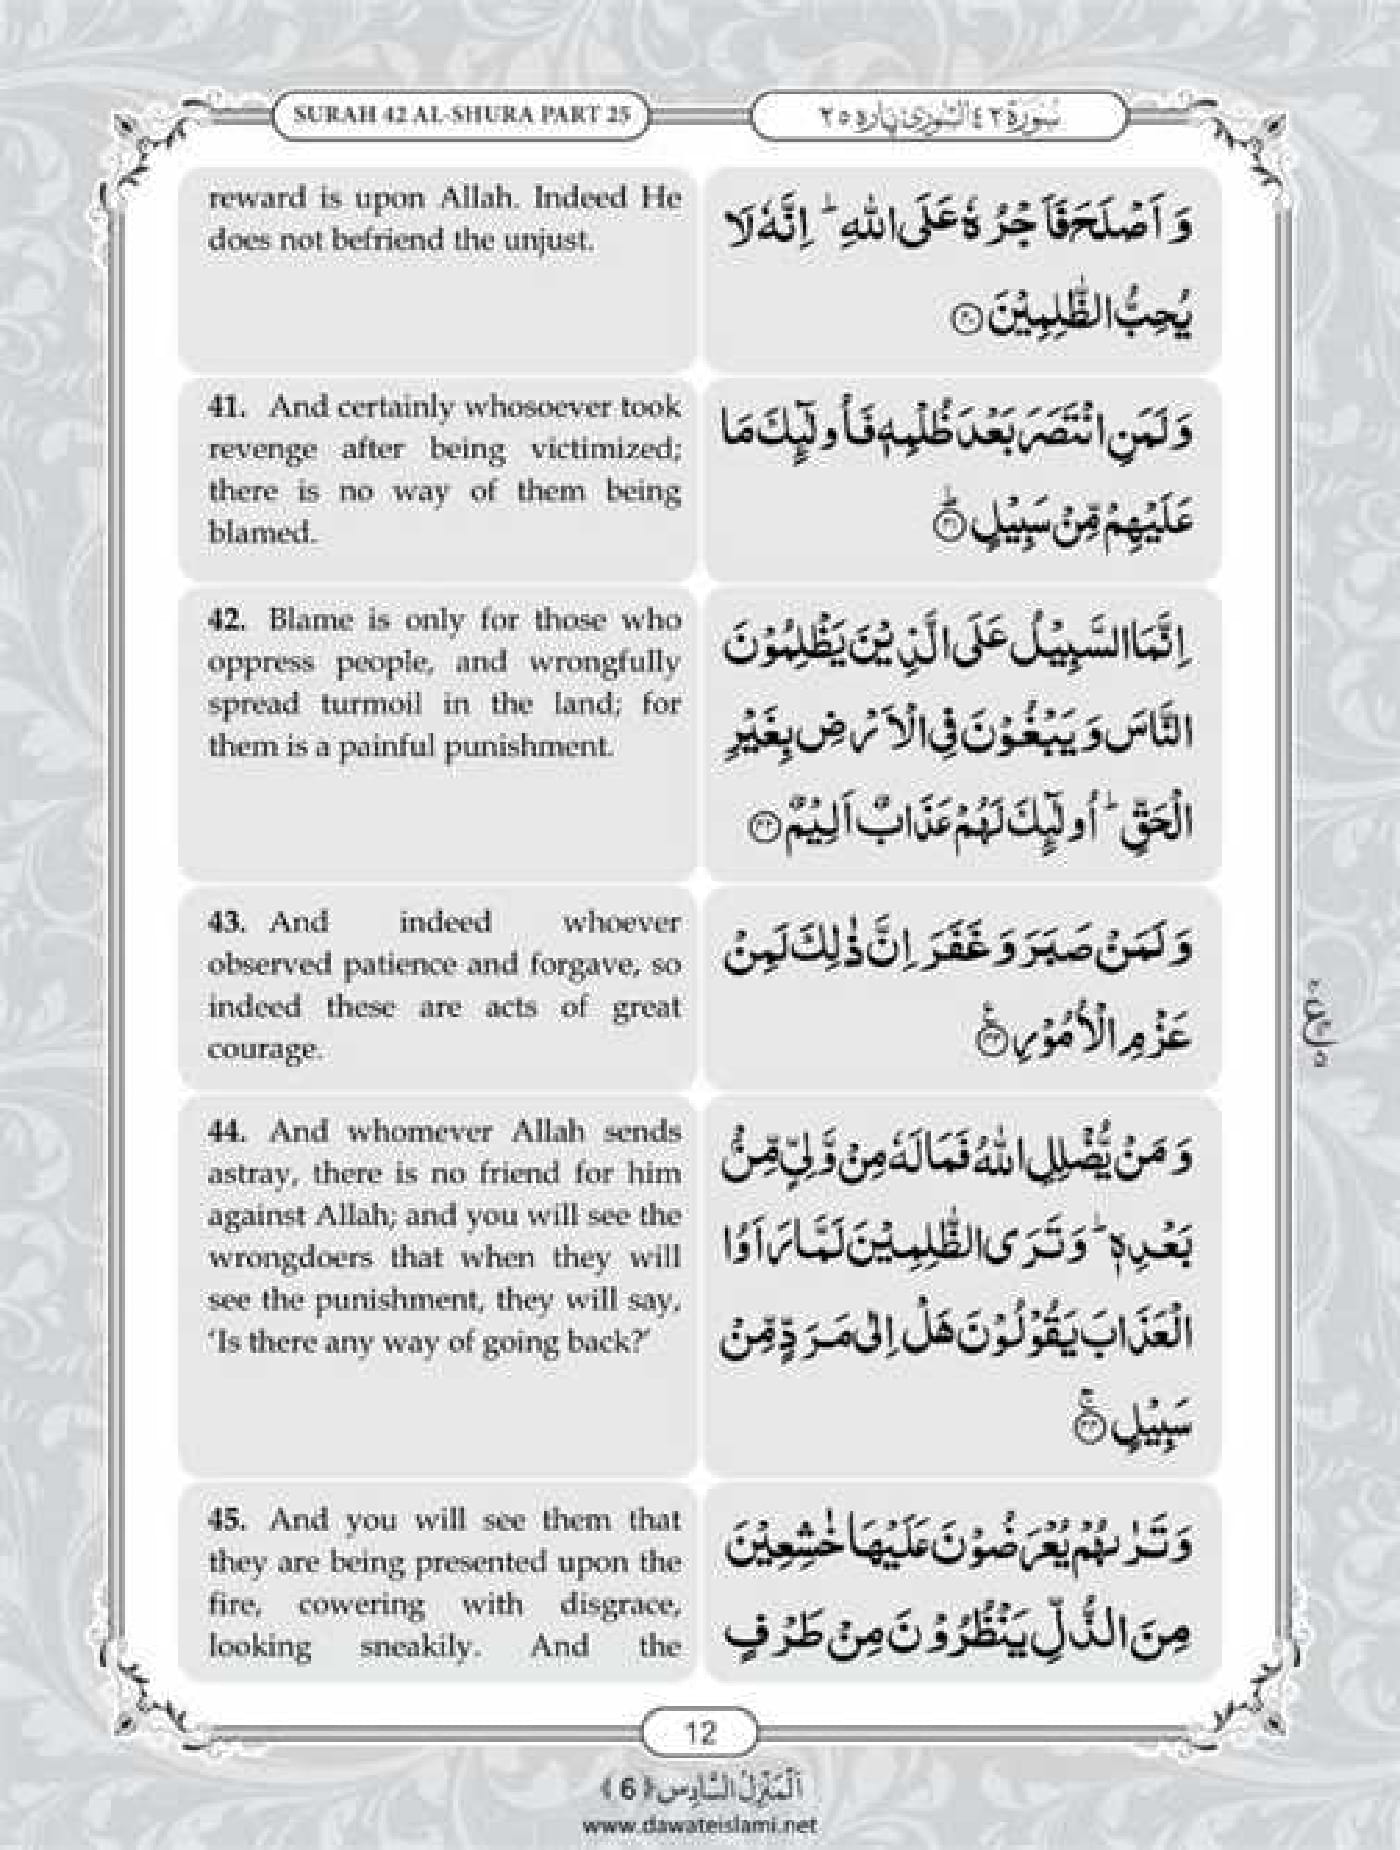 SURAH 42 AL-SHURA PART 25
سُوْرَة ٤٢ الشُّوْرٰى پاره ٢٥
reward is upon Allah. Indeed He
does not befriend the unjust.
وَ اَصْلَحَ فَاَجْرُهٗ عَلَى اللّٰهِ ؕ اِنَّهٗ لَا
یُحِبُّ الظّٰلِمِیْنَ ﴿۴۰﴾
41. And certainly whosoever took
revenge after being victimized;
there is no way of them being
blamed.
وَ لَمَنِ انْتَصَرَ بَعْدَ ظُلْمِهٖ فَاُولٰٓىِٕكَ مَا
عَلَیْهِمْ مِّنْ سَبِیْلٍ ﴿۴۱﴾ؕ
42. Blame is only for those who
oppress people, and wrongfully
spread turmoil in the land; for
them is a painful punishment.
اِنَّمَا السَّبِیْلُ عَلَى الَّذِیْنَ یَظْلِمُوْنَ
النَّاسَ وَ یَبْغُوْنَ فِی الْاَرْضِ بِغَیْرِ
الْحَقِّ ؕ اُولٰٓىِٕكَ لَهُمْ عَذَابٌ اَلِیْمٌ ﴿۴۲﴾
43. And indeed whoever
observed patience and forgave, so
indeed these are acts of great
courage.
وَ لَمَنْ صَبَرَ وَ غَفَرَ اِنَّ ذٰلِكَ لَمِنْ
عَزْمِ الْاُمُوْرِ ﴿۴۳﴾
44. And whomever Allah sends
astray, there is no friend for him
against Allah; and you will see the
wrongdoers that when they will
see the punishment, they will say,
‘Is there any way of going back?’
وَ مَنْ یُّضْلِلِ اللّٰهُ فَمَا لَهٗ مِنْ وَّلِیٍّ مِّنْۢ
بَعْدِهٖ ؕ وَ تَرَى الظّٰلِمِیْنَ لَمَّا رَاَوُا
الْعَذَابَ یَقُوْلُوْنَ هَلْ اِلٰى مَرَدٍّ مِّنْ
سَبِیْلٍ ﴿۴۴﴾ۚ
45. And you will see them that
they are being presented upon the
fire, cowering with disgrace,
looking sneakily. And the
وَ تَرٰىهُمْ یُعْرَضُوْنَ عَلَیْهَا خٰشِعِیْنَ
مِنَ الذُّلِّ یَنْظُرُوْنَ مِنْ طَرْفٍ
12
اَلْمَنْزِلُ السَّادِس ﴿6﴾
www.dawateislami.net